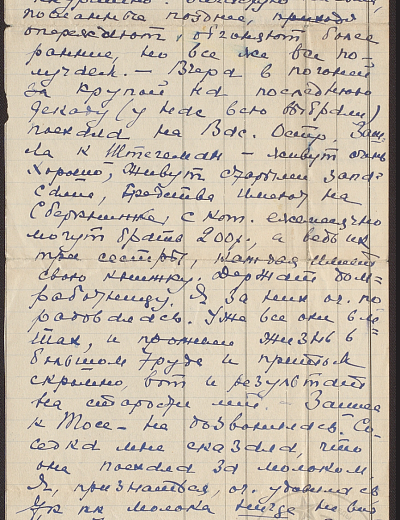 посланные позднее, приходя
опережают, обгоняют более
ранние, но все же все по-
лучаем. — Вчера в погоней
за крупой на последнюю
декаду (у нас всю выбрали)
поехала на Вас. Остр. Заш-
ла к Штегеман — живут очень
хорошо, живут старыми запа-
сами, средства имеют на
сберкнижке, с кот. ежемесячно
могут брать 200 р., а ведь их
три сестры, каждая имеет
свою книжку. Держат дом-
работницу. Я за них оч. по-
радовалась. Уже все они в ле-
тах, и прожили жизнь в
большом труде и притом
скромно, вот и результат
на старости лет. — Зашла
к Тосе — не дозвонилась. Со-
седка мне сказала, что
она поехала за молоком.
Я, признаться, оч. удивилась,
т.к. молока нигде не